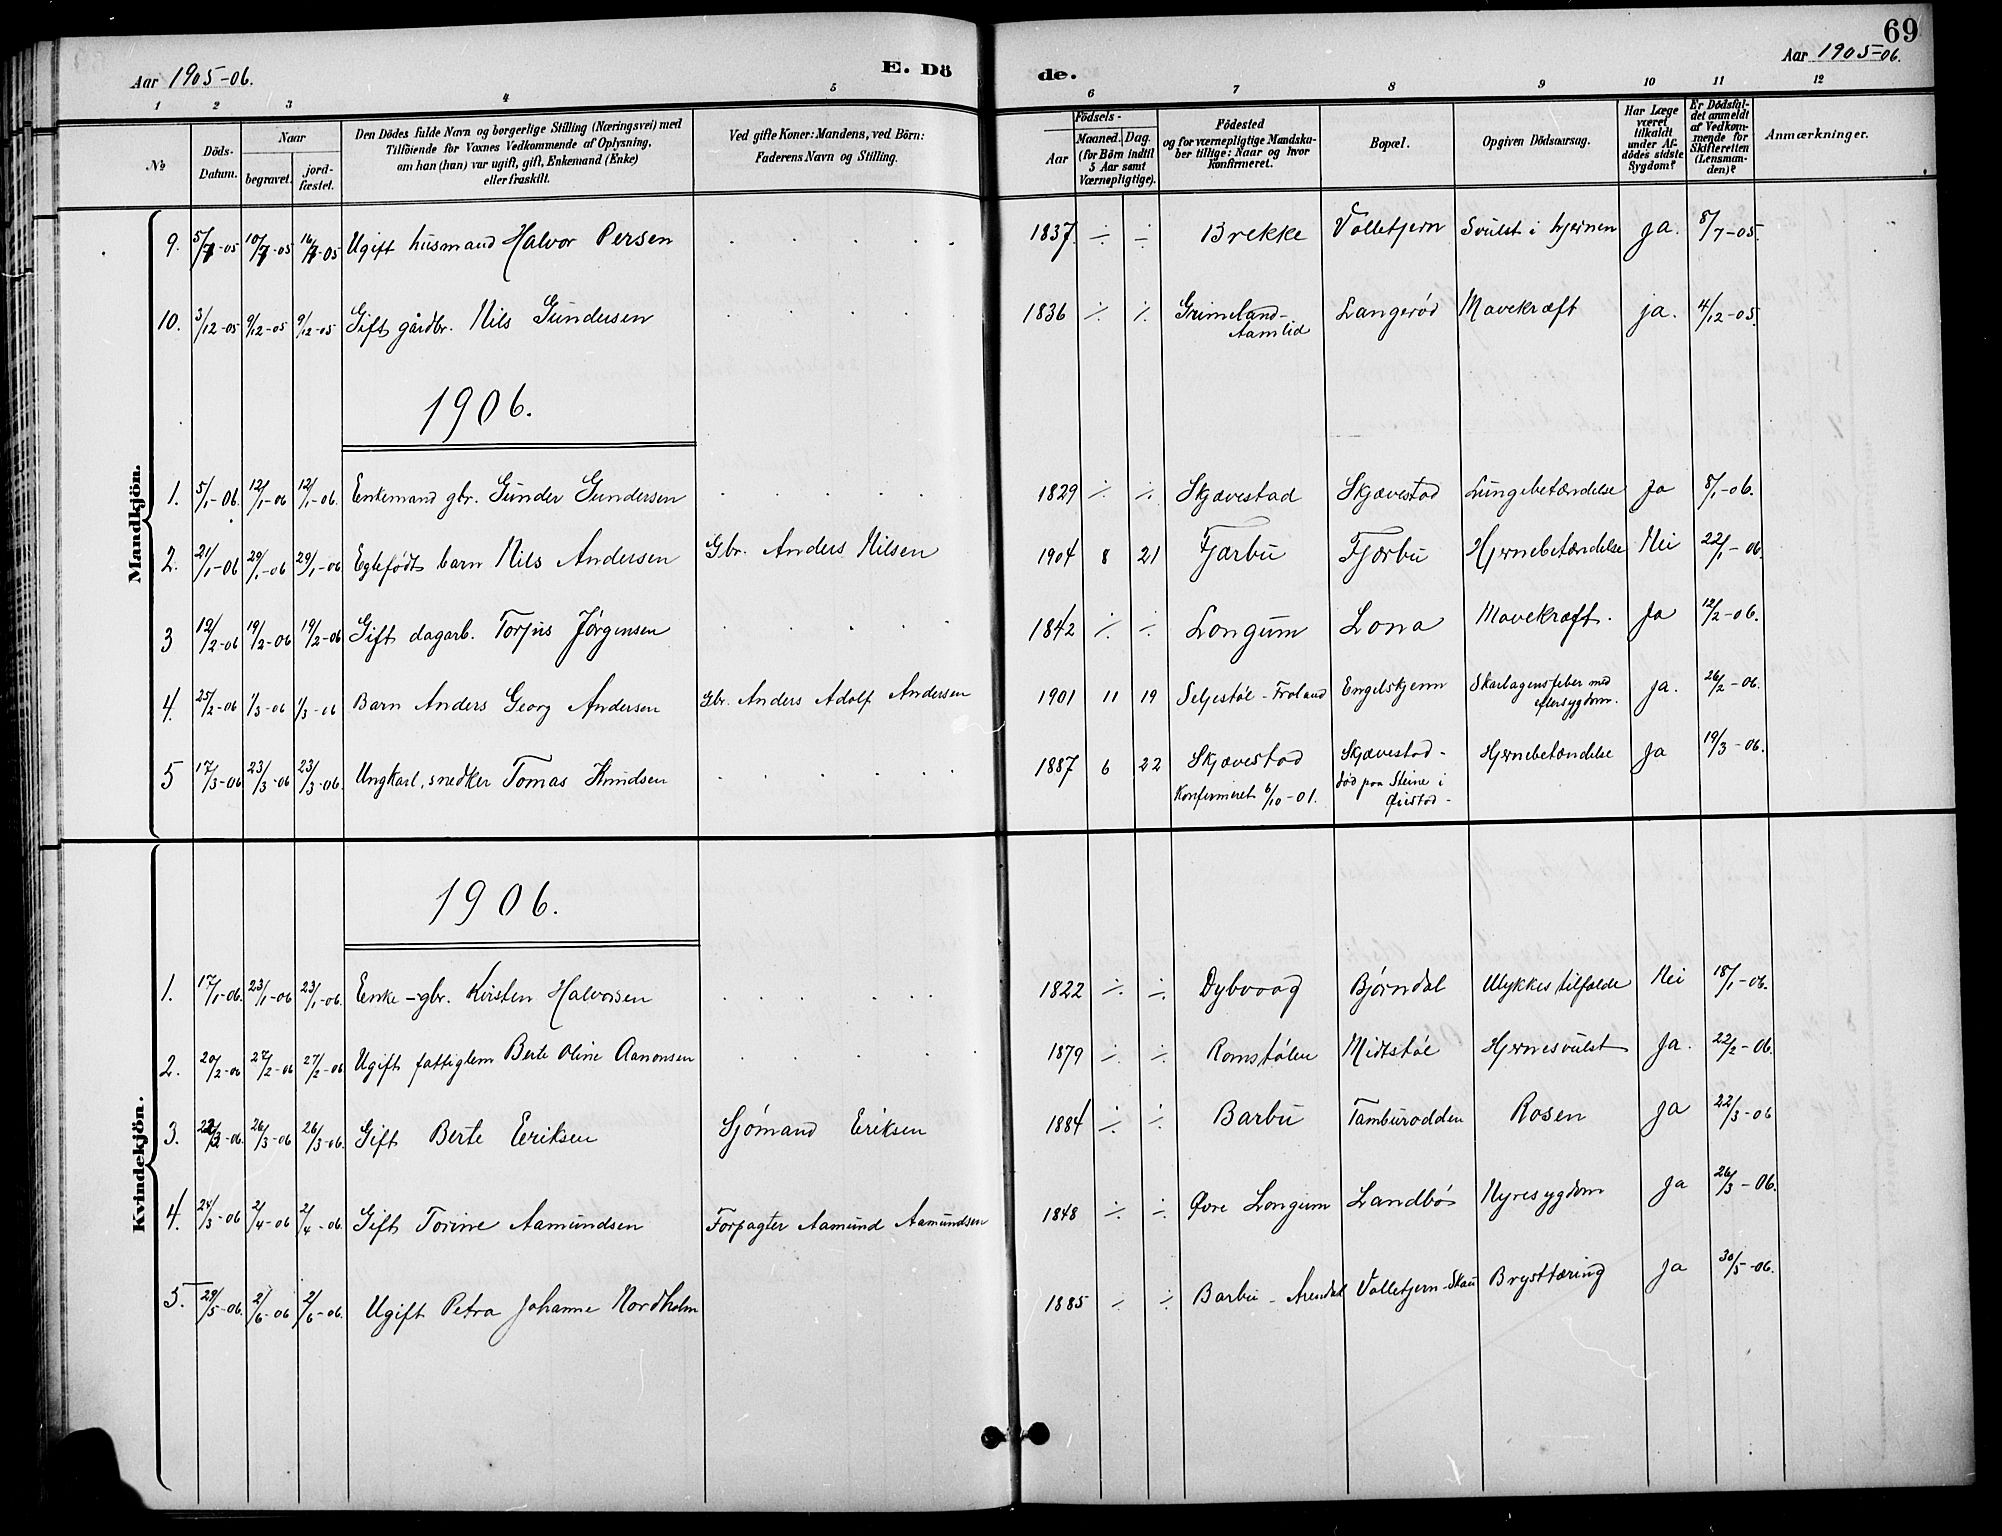 69
Aar 1905-06. E. Dö de. Aar 1905-06.
1 2 3 4 5 6 7 8 9 10 11 12
№ Döds-Datum. Naar begravet. jord-fæstet. Den Dödes fulde Navn og borgerlige Stilling (Næringsvei) med Tilföiende for Voxnes Vedkommende af Oplysning, om han (hun) var ugift, gift, Enkemand (Enke) eller fraskilt. Ved gifte Koner: Mandens, ved Börn: Faderens Navn og Stilling. Födsels- Aar Maaned. Dag. (for Börn indtil 5 Aar samt Værnepligtige). Födested og for værnepligtige Mandskaber tillige: Naar og hvor konfirmeret. Bopæl. Opgiven Dödsaarsag. Har Læge været tilkaldt under Afdödes sidste Sygdom? Er Dödsfaldet anmeldt af Vedkommende for Skifteretten (Lensmanden)? Anmærkninger.
Mandkjön.
9. 5/7-05 10/7-05 16/7-05 Ugift husmand Halvor Persen 1837 ÷ ÷ Brekke Valletjern Svulst i hjernen ja. 8/7-05.
10. 3/12-05 9/12-05 9/12-05 Gift gårdbr. Nils Gundersen 1836 ÷ ÷ Grimeland-Aamlid Langerød Mavekræft ja. 4/12-05.
1906.
1. 5/1-06. 12/1-06 12/1-06. Enkemand gbr. Gunder Gundersen 1829 ÷ ÷ Skjævestad Skjævestad Lungebetændelse Ja 8/1-06.
2. 21/1-06 29/1-06 29/1-06 Egtefødt barn Nils Andersen Gbr. Anders Nilsen 1904 8 21 Fjærbu Fjærbu Hjernebetændelse Nei 22/1-06.
3 12/2-06 19/2-06 19/2-06 Gift dagarb. Torjus Jørgensen 1842 ÷ ÷ Longum Lona Mavekræft. Ja 12/2-06.
4. 25/2-06 1/3-06 1/3-06 Barn Anders Georg Andersen Gbr. Anders Adolf Andersen 1901 11 19 Seljestøl-Froland Engelskjenn Skarlagensfeber med eftersygdom. ja. 26/2-06.
5 17/3-06 23/3-06 23/3-06. Ungkarl, snedker Tomas Knudsen 1887 6 22 Skjævestad Konfirmeret 6/10-01. Skjævestad- død paa Steine i Øiestad- Hjernebetændelse Ja 19/3-06.
Kvindekjön.
1906.
1. 17/1-06. 23/1-06 23/1-06. Enke-gbr. Kirsten Halvorsen 1822 ÷ ÷ Dybvaag Bjørndal Ulykkestilfælde Nei 18/1-06.
2. 20/2-06 27/2-06 27/2-06 Ugift fattiglem Berte Oline Aanonsen 1879 ÷ ÷ Romstølen Midtstøl Hjernesvulst Ja. 22/2-06.
3. 22/3-06. 26/3-06 26/3-06. Gift Berte Eriksen Sjømand Eriksen 1884 ÷ ÷ Barbu Tamburodden Rosen Ja 22/3-06
4. 24/3-06 2/4-06 2/4-06. Gift Torine Aamundsen Forpagter Aamund Aamundsen 1848 ÷ ÷ Øvre Longum Landbø Nyresygdom Ja 26/3-06.
5. 29/5-06. 2/6-06 2/6-06. Ugift Petra Johanne Nordholm 1885 ÷ ÷ Barbu-Arendal Valletjern-Skau Brysttæring Ja 30/5-06.